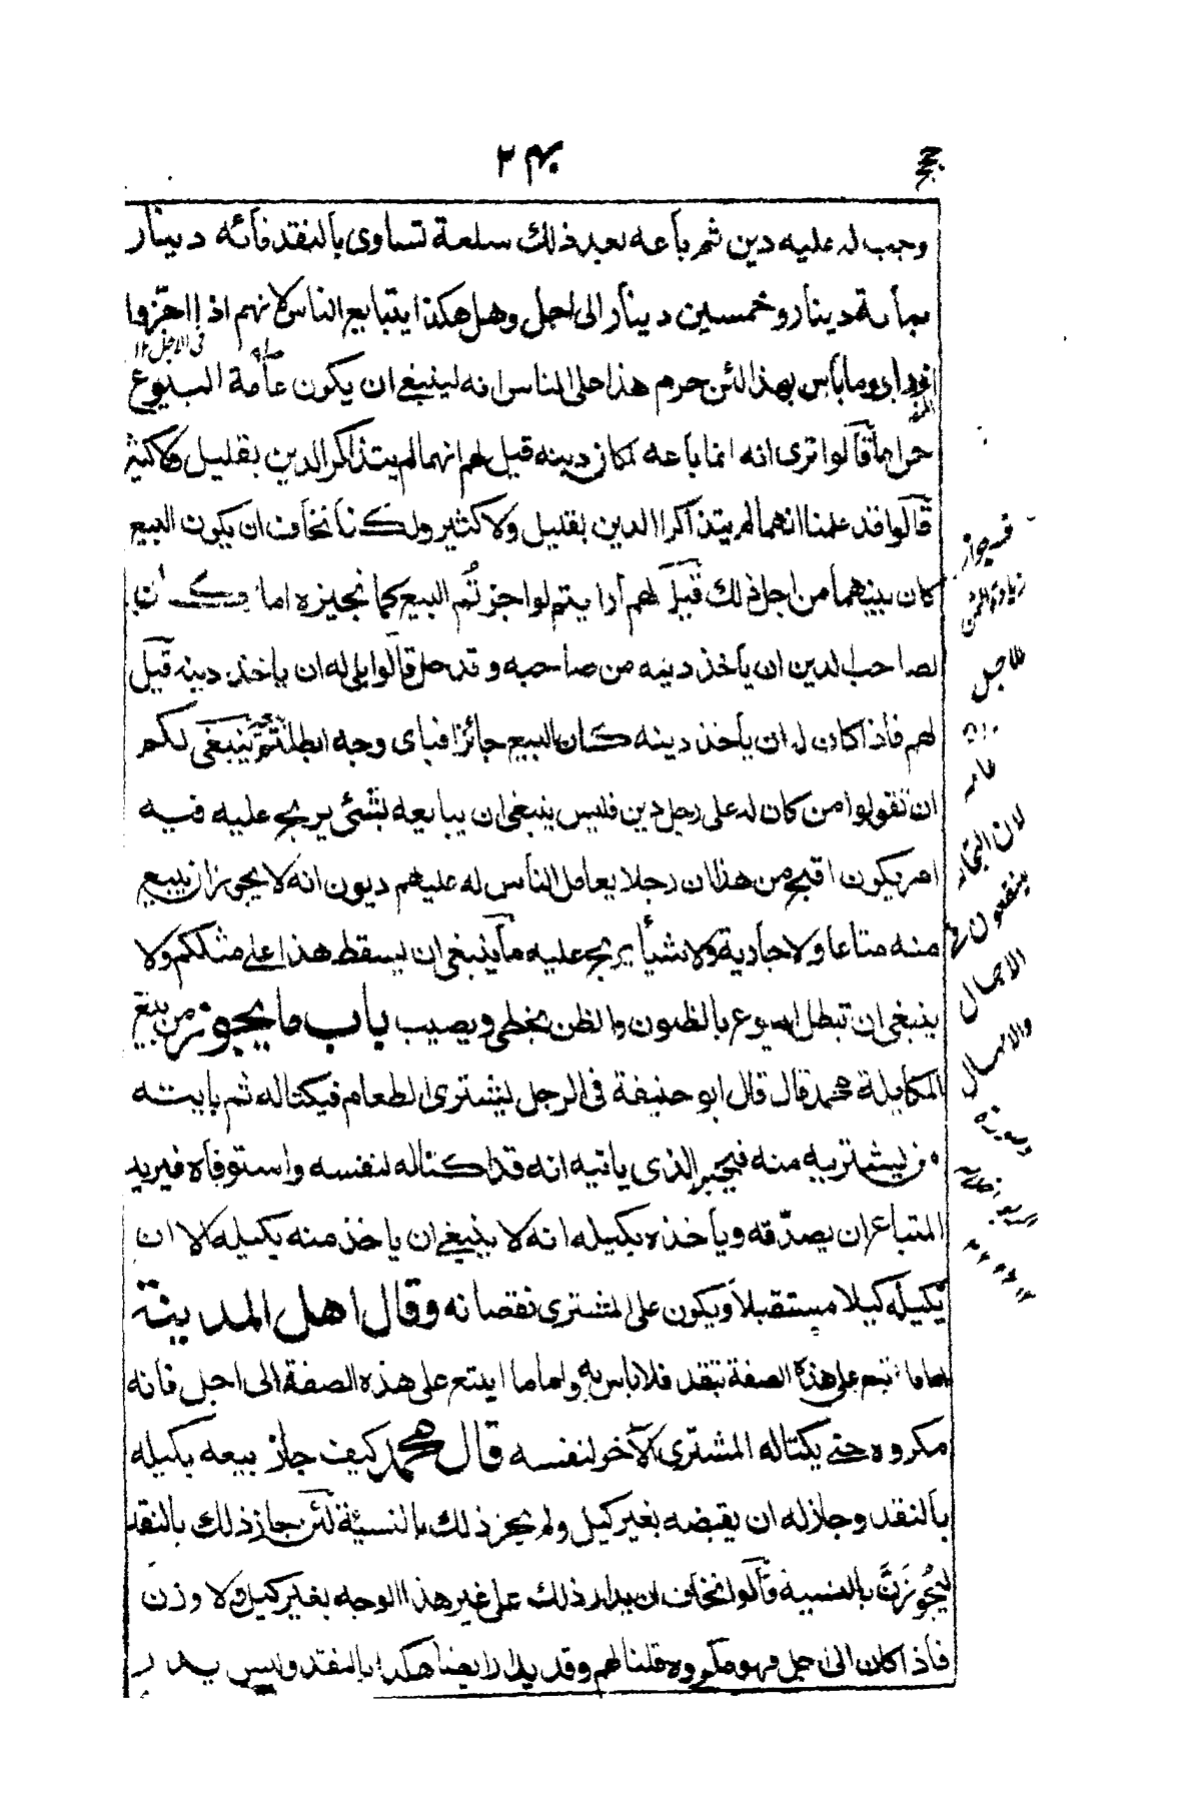 وجب له عليه دين ثم باعه بعد ذلك سلعة تساوى بالنقد مائه دينار
بمائة دينار وخمسين دينار الى اجل وهل هكذا يتبايع الناس لانهم اذا اخروا
فى الاجل ١٢
ازدادوا وما بأس بهذا لئن حرم هذا على الناس انه لينبغى ان يكون عامة البيوع
حراما قالوا ترى انه انما باعه لمكان دينه قيل لهم انهما لم يتذاكرا الدين بقليل ولا كثير
قالوا قد علمنا انهما لم يتذاكرا الدين بقليل ولا كثير ولكنا نخاف ان يكون البيع
كان بينهما من اجل ذلك قيل لهم ارايتم لو اجزتم البيع كما نجيزه اما كان
لصاحب الدين ان يأخذ دينه من صاحبه وقد حل قالوا بلى له ان ياخذ دينه قيل
لهم فاذا كان له ان يأخذ دينه كان البيع جائزا فباى وجه ابطلتم ينبغى لكم
ان تقولوا من كان له على رجل دين فليس ينبغى ان يبايعه بشئى يربح عليه فيه
امر يكون اقبح من هذا ان رجلا يعامل الناس له عليهم ديون انه لا يجوز ان يبيع
منه متاعا ولا جارية ولا شيأ يربح عليه ما ينبغى ان يسقط هذا على مثلكم ولا
ينبغى ان تبطل البيوع بالظنون والظن يخطى ويصيب باب ما يجوز من بيع
المكايلة محمد قال قال ابو حنيفة فى الرجل يشترى الطعام فيكتاله ثم ياتيه
من يشتريه منه فيخبر الذى ياتيه انه قد اكتاله لنفسه واستوفاه فيريد
المتباع ان يصدّقه ويأخذه بكيله انه لا ينبغى ان ياخذ منه بكيله الا ان
يكيله كيلا مستقبلا ويكون على المشترى نقصانه وقال اهل المدينة
اما ما بيع على هذه الصفة بنقد فلا باس به واما ما ابتيع على هذه الصفة الى اجل فانه
مكروه حتى يكتاله المشترى الآخر لنفسه قال محمد كيف جاز بيعه بكيله
بالنقد وجاز له ان يقبضه بغير كيل ولم يجز ذلك بالنسيئة لئن جاز ذلك بالنقد
ليجوزن بالنسية قالوا نخاف ان يدار ذلك على غير هذا الوجه بغير كيل ولا وزن
فاذا كان الى اجل فهو مكروه قلنا لهم وقد يدار ايضا هكذا بالنقد وليس يدار
زيادة الثمن
للاجل
لان التجار
ينتفعون